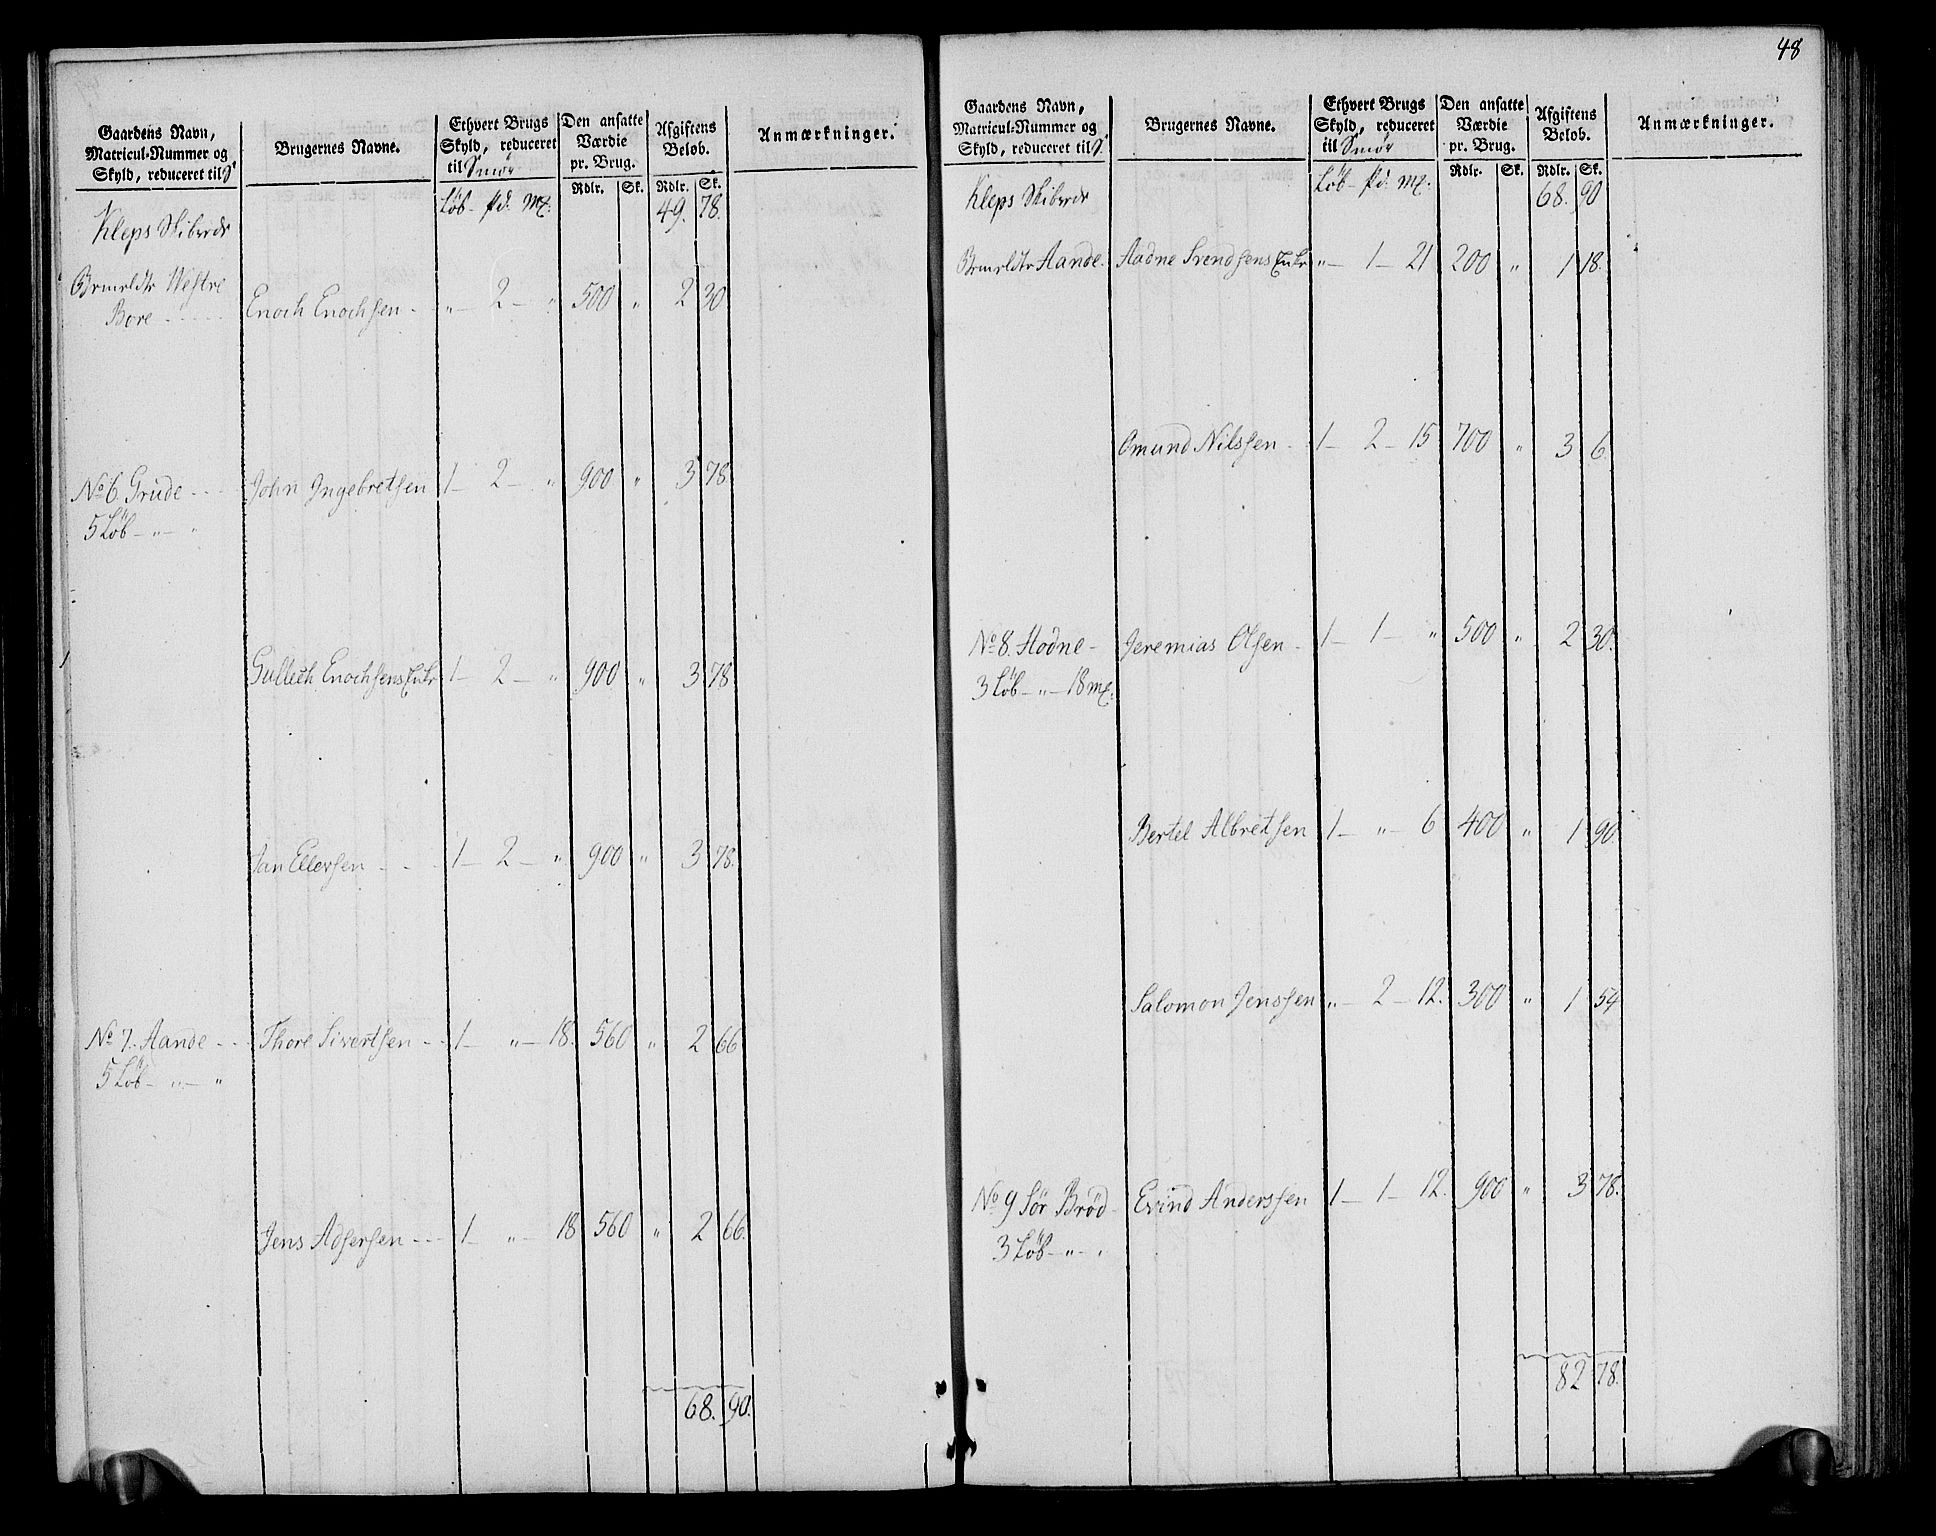 Gaardens Navn, Matricul-Nummer og Skyld, reduceret til S
Brugernes Navne.
Ethvert Brugs Skyld, reduceret til Smör
Den ansatte Værdie pr. Brug.
Afgiftens Beløb.
Anmærkninger.
Rdlr. Sk. Rdlr. Sk.
Kleps Skibrede Löb- pd: mk: 49. 78.
Westre
Bore - - - Enoch Enochsen - " - 2 - " 500 " 2 30
No 6. Grude - - - John Ingebretsen 1 - 2 - " 900 " 3 78.
5 Löb - " - "
Gullech Enochsens Enke 1 - 2 - " 900 " 3 78
Jan Ellersen - - - 1 - 2 - " 900 " 3 78.
No 7. Aande - - - Thore Sivertsen - - 1 - " - 18. 560 " 2 66
5 Löb - " - "
Jens Adsersen - - - 1 - " - 18 560 " 2 66.
68. 90.
48
Gaardens Navn, Matricul-Nummer og Skyld, reduceret til S
Brugernes Navne.
Ethvert Brugs Skyld, reduceret til Smör
Den ansatte Værdie pr. Brug.
Afgiftens Beløb.
Anmærkninger.
Rdlr. Sk. Rdlr. Sk.
Kleps Skibrede Löb- pd: mk: 68. 90
Aande - Aadne Svendsens Enke " - 1 - 21 200 " 1 18.
Omund Nilssen - 1 - 2 - 15 700 " 3 6.
No 8. Hodne - Jeremias Olsen - 1 - 1 - " 500 " 2 30.
3 Löb - " - 18 mk:
Bertel Albretsen 1 - " - 6 400 " 1 90.
Salomon Jenssen " - 2 - 12. 300 " 1 54
No 9 Sör Bröd - Evind Anderssen 1 - 1 - 12. 900 " 3 78.
3 Löb - " - "
82 78.